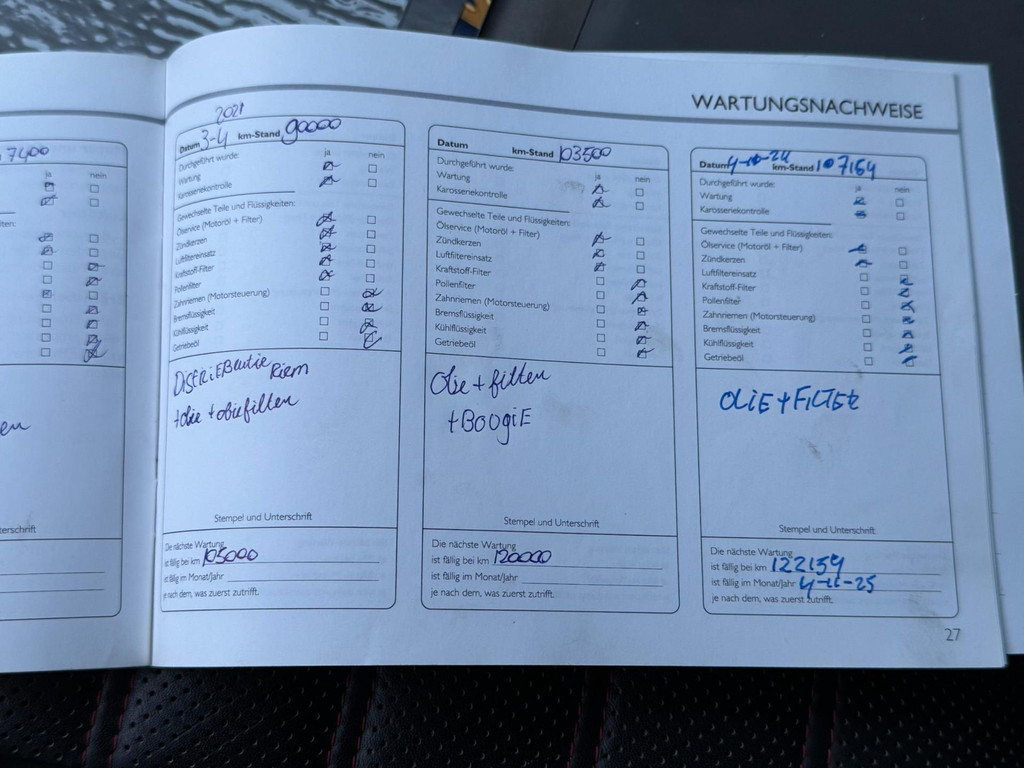 WARTUNGSNACHWEISE
7400
ja nein
en
Stempel und Unterschrift
2021
Datum 3-4 km-Stand 90000
Durchgeführt wurde: ja nein
Wartung
Karosseriekontrolle
Gewechselte Teile und Flüssigkeiten:
Ölservice (Motoröl + Filter)
Zündkerzen
Luftfiltereinsatz
Kraftstoff-Filter
Pollenfilter
Zahnriemen (Motorsteuerung)
Bremsflüssigkeit
Kühlflüssigkeit
Getriebeöl
DiSERiEBeutie Riem
+olie +oliefilten
Stempel und Unterschrift
Die nächste Wartung
ist fällig bei km 105000
ist fällig im Monat/Jahr
je nach dem, was zuerst zutrifft.
Datum km-Stand 103500
Durchgeführt wurde: ja nein
Wartung
Karosseriekontrolle
Gewechselte Teile und Flüssigkeiten:
Ölservice (Motoröl + Filter)
Zündkerzen
Luftfiltereinsatz
Kraftstoff-Filter
Pollenfilter
Zahnriemen (Motorsteuerung)
Bremsflüssigkeit
Kühlflüssigkeit
Getriebeöl
Olie + filten
+BOOgiE
Stempel und Unterschrift
Die nächste Wartung
ist fällig bei km 120000
ist fällig im Monat/Jahr
je nach dem, was zuerst zutrifft.
Datum 4-11-24 km-Stand 107164
Durchgeführt wurde: ja nein
Wartung
Karosseriekontrolle
Gewechselte Teile und Flüssigkeiten:
Ölservice (Motoröl + Filter)
Zündkerzen
Luftfiltereinsatz
Kraftstoff-Filter
Pollenfilter
Zahnriemen (Motorsteuerung)
Bremsflüssigkeit
Kühlflüssigkeit
Getriebeöl
OLIE + FILTER
Stempel und Unterschrift
Die nächste Wartung
ist fällig bei km 122159
ist fällig im Monat/Jahr 4-11-25
je nach dem, was zuerst zutrifft.
27